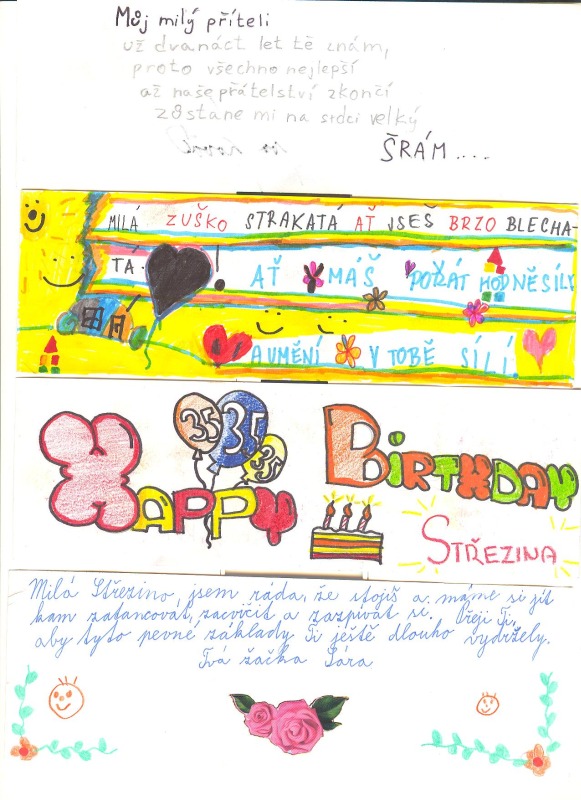 Můj milý příteli
už dvanáct let tě znám,
proto všechno nejlepší
až naše přátelství zkončí
zůstane mi na srdci velký
ŠRÁM....
MILÁ ZUŠKO STRAKATÁ AŤ JSEŠ BRZO BLECHA-
TÁ. !
AŤ MÁŠ POŘÁT HODNĚ SÍLY
A UMĚNÍ V TOBĚ SÍLÍ.
HAPPY 35 35 35 BIRTHDAY
STŘEZINA
Milá Střezino, jsem ráda, že stojíš a máme si jít
kam zatancovat, zacvičit a zazpívat si. Přeji Ti,
aby tyto pevné základy Ti ještě dlouho vydržely.
Tvá žačka Sára